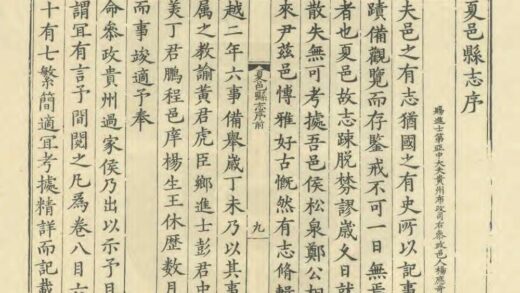 夏邑縣志序
賜進士第亞中大夫貴州布政司右參政邑人楊應奇
夫邑之有志猶國之有史所以記事
蹟備觀覽而存鑒戒不可一日無焉
者也夏邑故志踈脱棼謬歲久日就
散失無可考據吾邑侯松泉鄭公相
來尹兹邑愽雅好古慨然有志脩輯
越二年六事備舉歲丁未乃以其事
夏邑縣志序前
九
属之教諭黃君虎臣鄉進士彭君中
美丁君鵬程邑庠楊生王休歷數月
而事竣適予奉
命叅政貴州過家侯乃出以示予日
謂冝有言予閱之凡爲卷八目六
十有七繁簡適冝考據精詳而記載